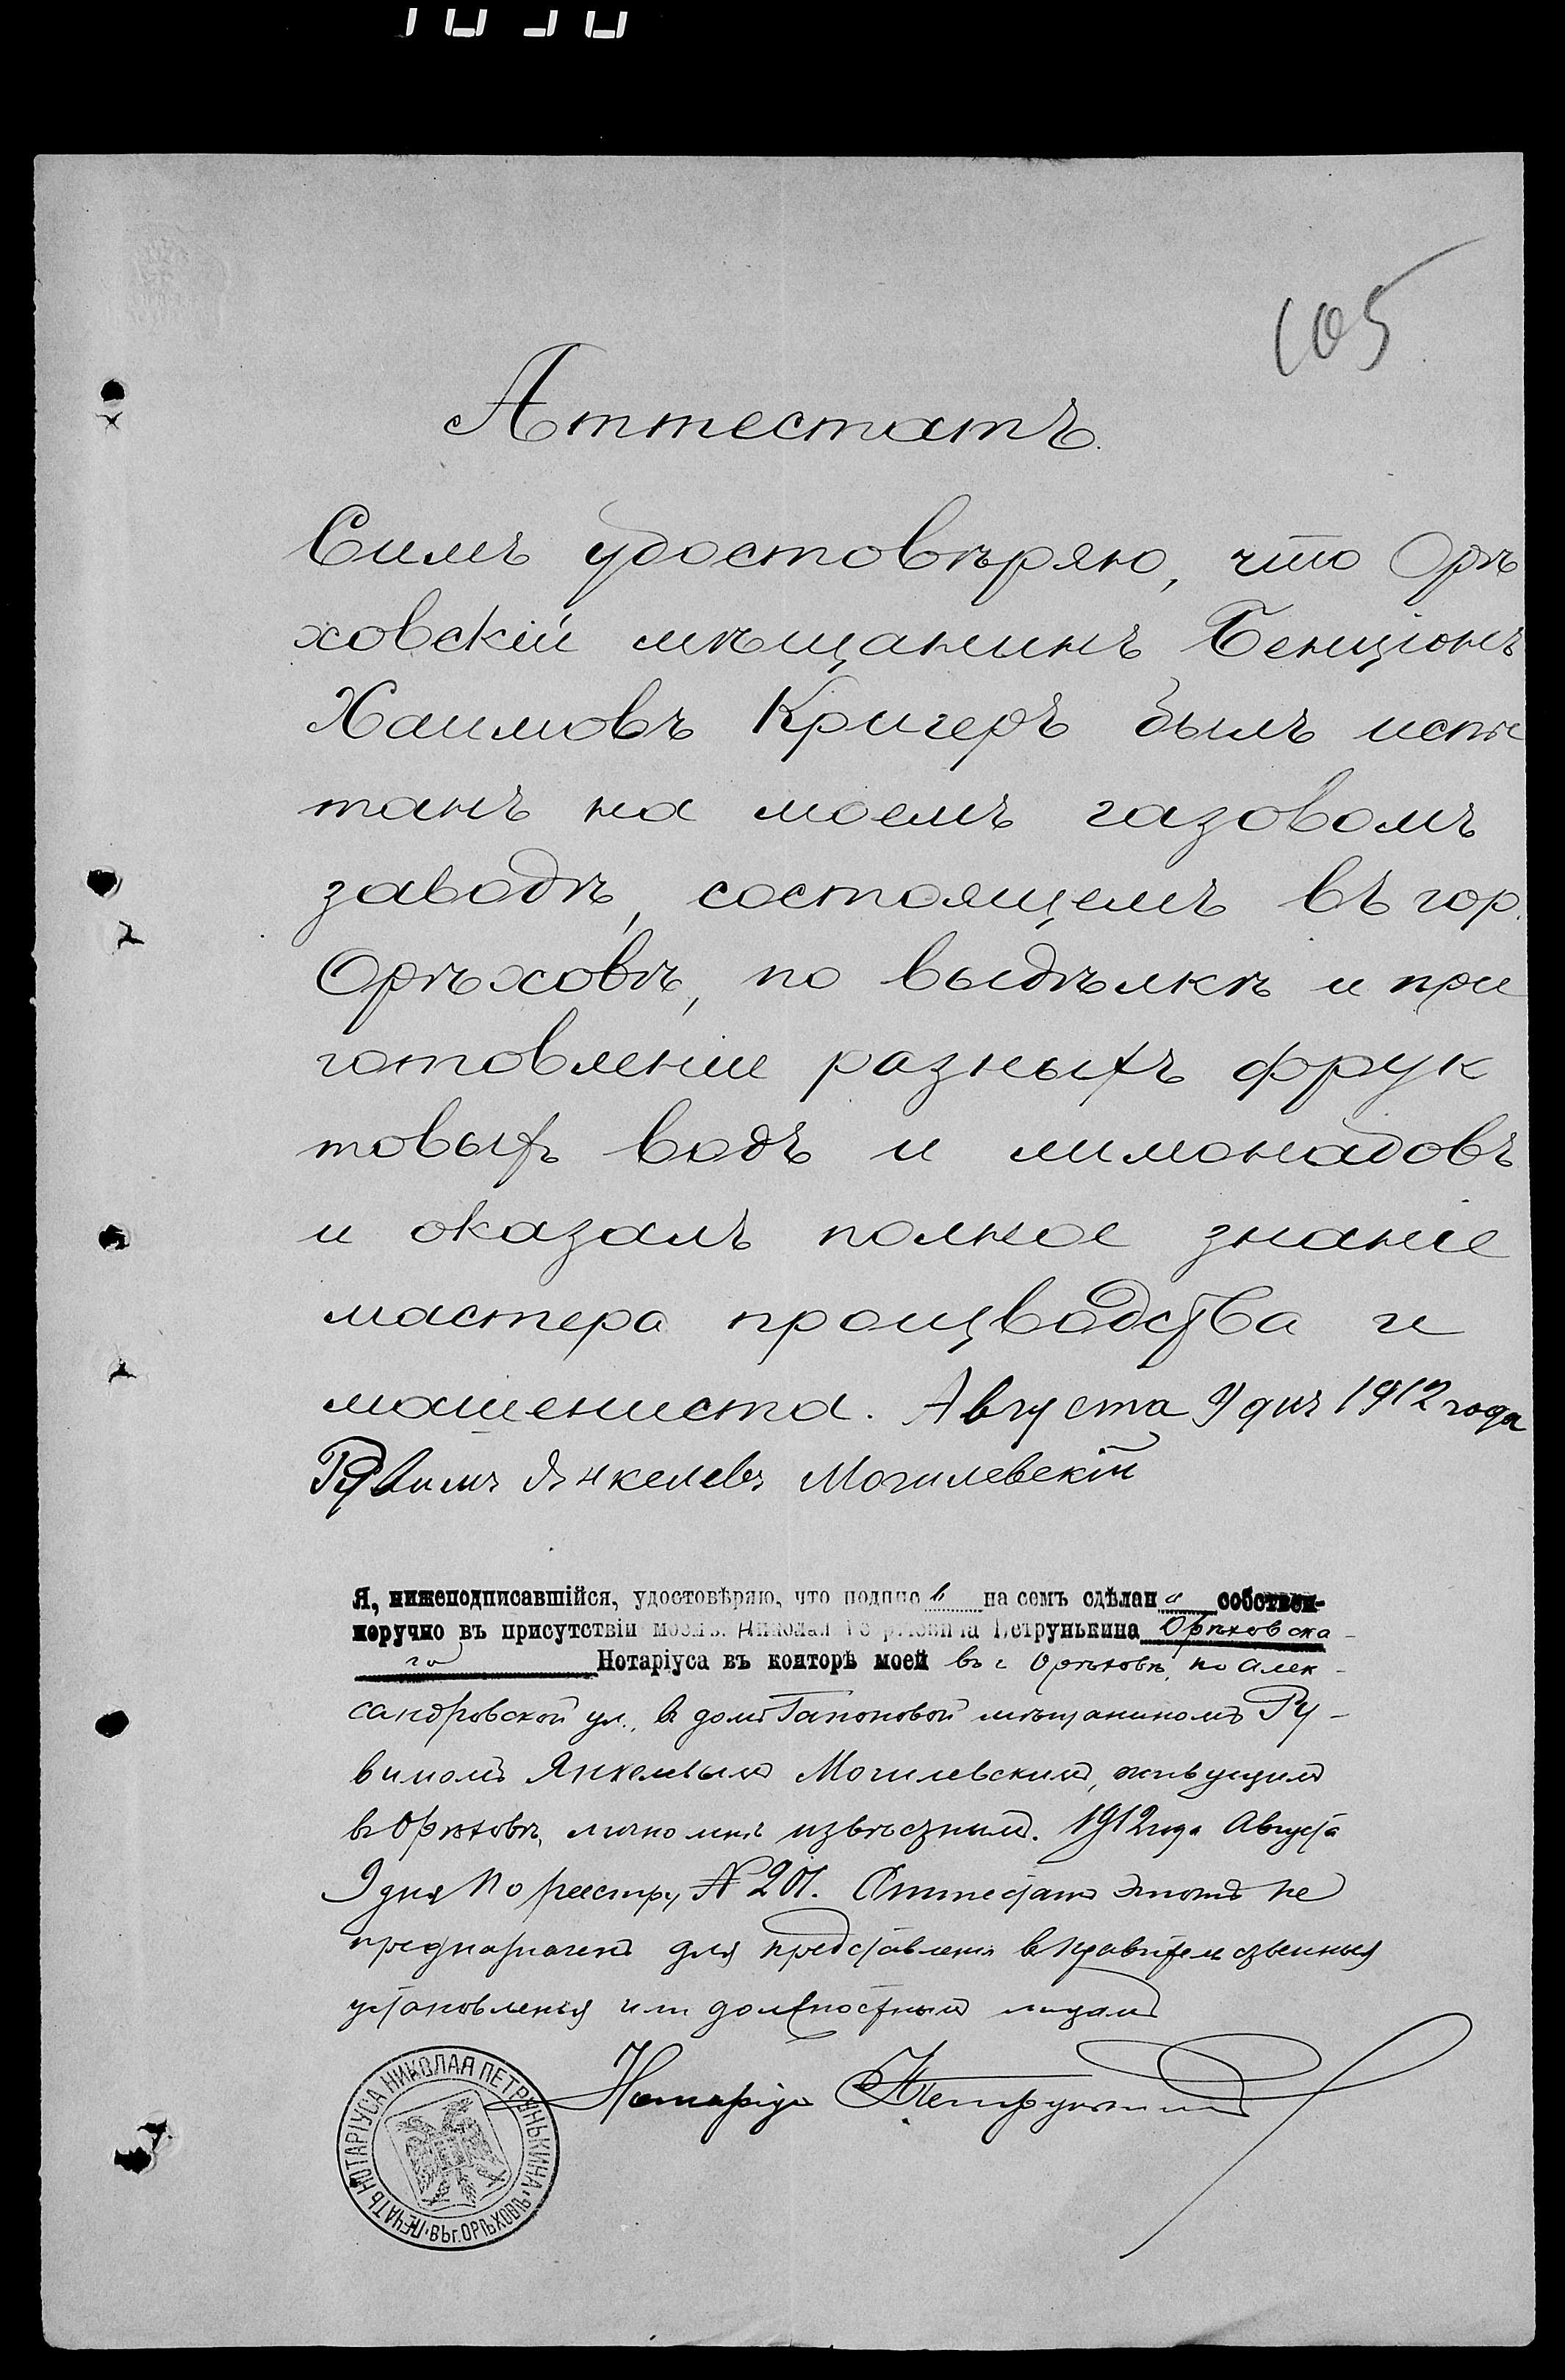 105
Аттестатъ.
Симъ удостовѣряю, что Орѣ
ховскій мѣщанинъ Бенціонъ
Хаимовъ Кригеръ былъ испы
танъ на моемъ газовомъ
заводѣ, состоящемъ въ гор.
Орѣховѣ, по выдѣлкѣ и при
готовленіи разныхъ фрук
товыхъ водъ и лимонадовъ
и оказалъ полное знаніе
мастера производства и
машениста. Августа 9 дня 1912 года
Рувимъ Янкелевъ Могилевскій
Я, нижеподписавшійся, удостовѣряю, что подпис ь на семъ сдѣлан а собствен-
норучно въ присутствіи моемъ, Николая Петрунькина Орѣховска-
го Нотаріуса въ конторѣ моей въ г. Орѣховѣ, по Алек-
сандровской ул., въ домѣ Гапоновой мѣщаниномъ Ру-
вимомъ Янкелевымъ Могилевскимъ, живущимъ
въ Орѣховѣ, лично мнѣ извѣстнымъ. 1912 года Августа
9 дня По реестру № 201. Аттестатъ этотъ не
предназначенъ для представленія въ правительственныя
установленія или должностнымъ лицамъ
Нотаріусъ Петрунькинъ
ПЕЧАТЬ НОТАРІУСА НИКОЛАЯ ПЕТРУНЬКИНА ВЪ г. ОРѢХОВѢ